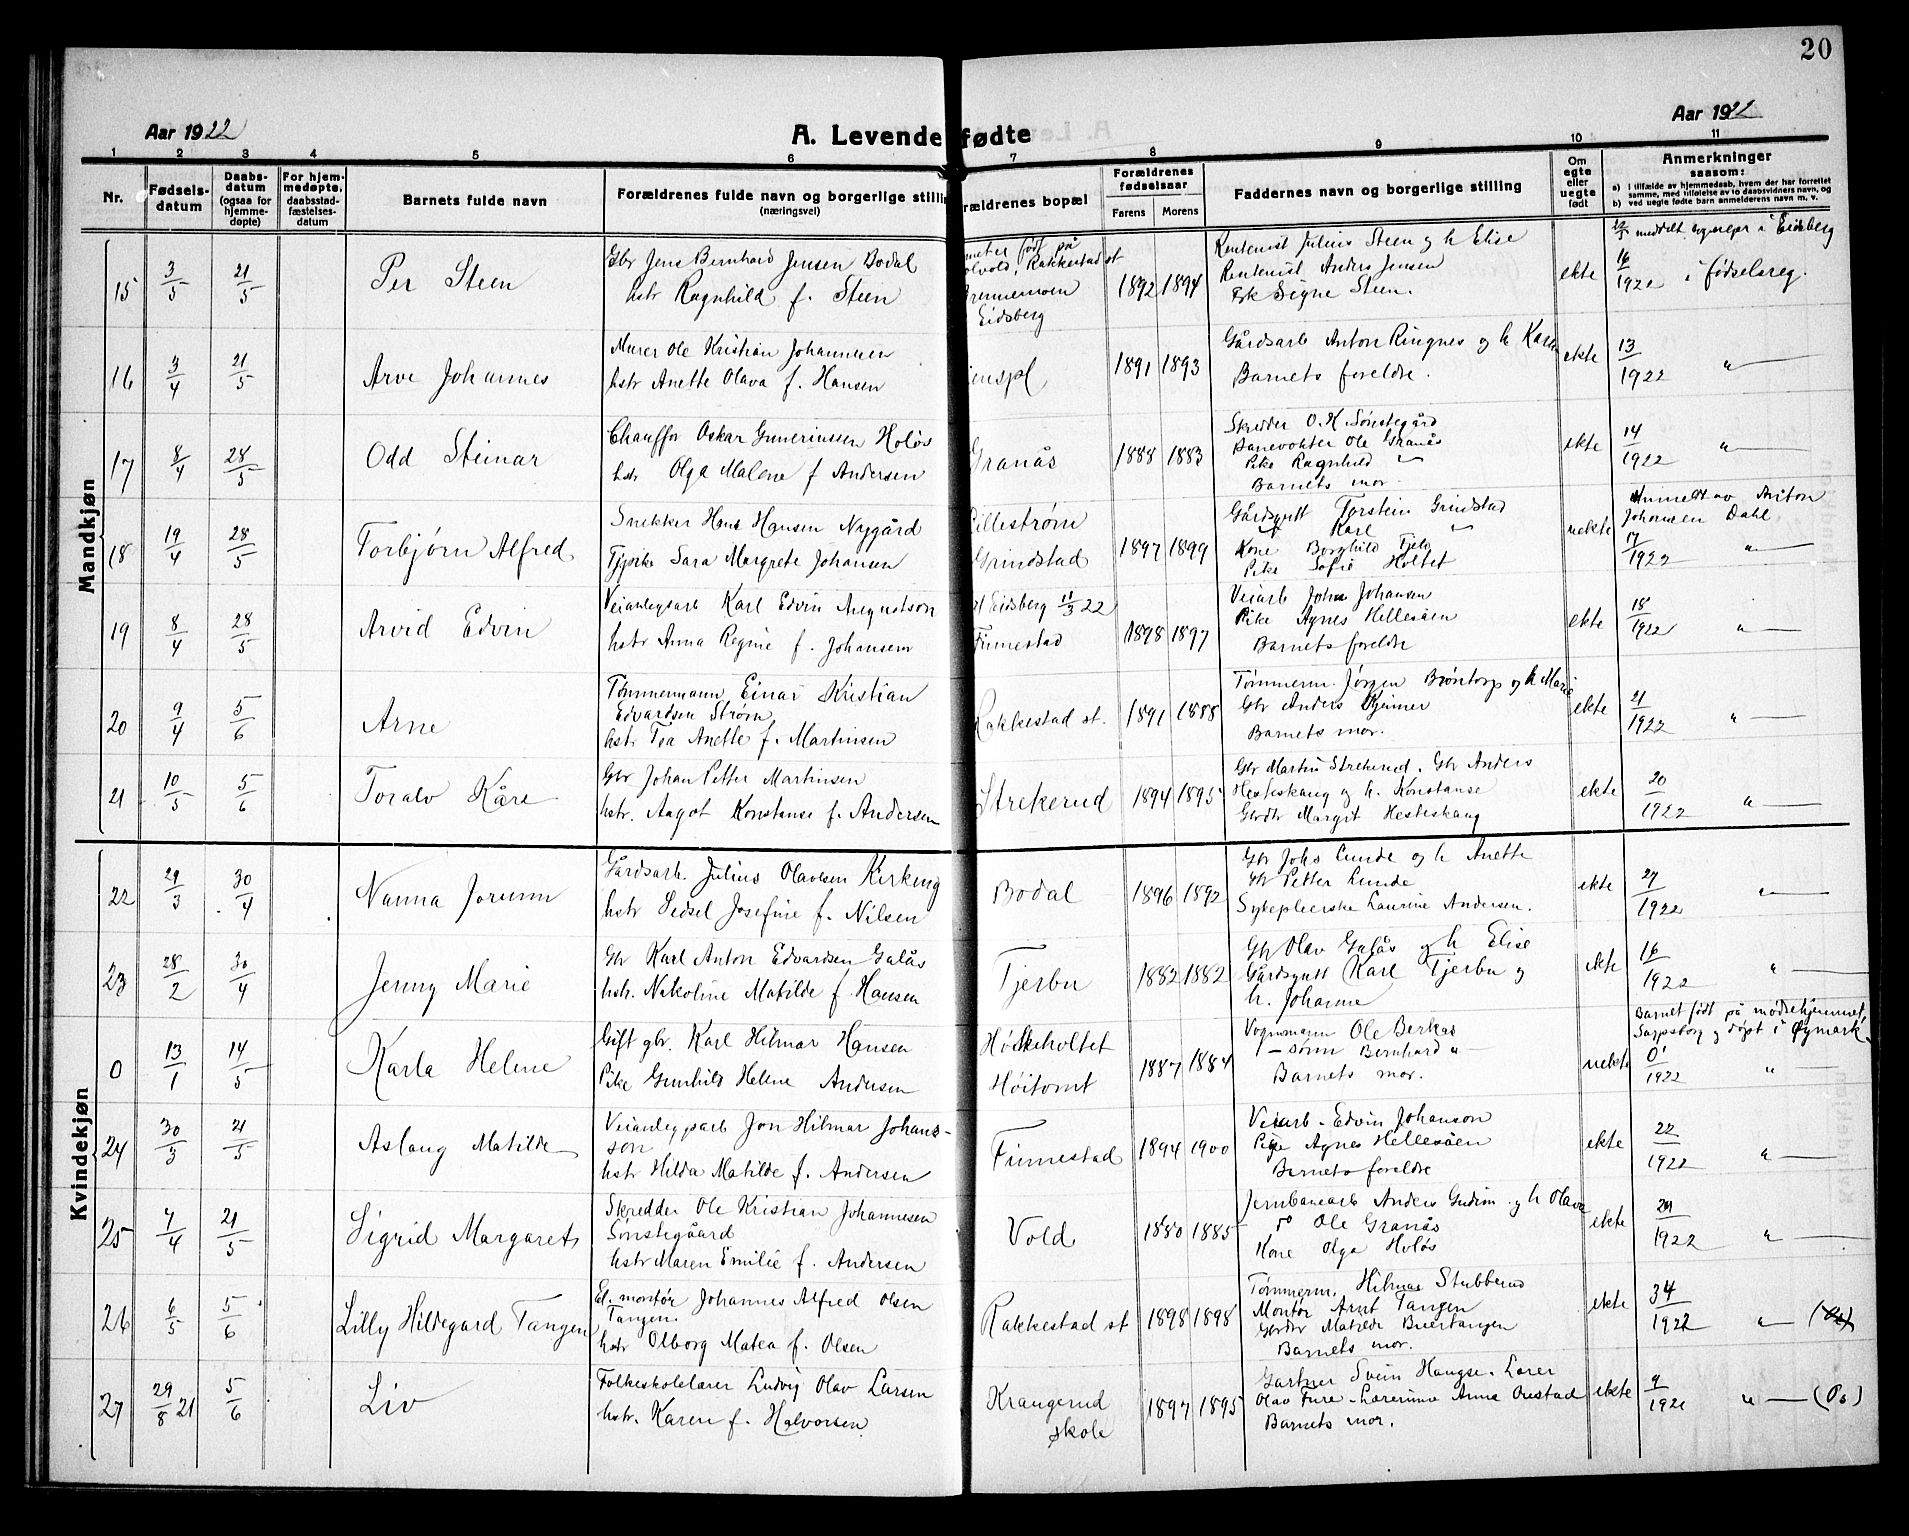 20
Aar 1922
A. Levende fødte
Aar 192
1 2 3 4 5 6 7 8 9 10 11
Nr.
Fødsels-
datum
Daabs-
datum
(ogsaa for
hjemme-
døpte)
For hjem-
medøpte,
daabsstad-
fæstelses-
datum
Barnets fulde navn
Forældrenes fulde navn og borgerlige stilling
(næringsvei)
Forældrenes bopæl
Forældrenes
fødselsaar
Farens Morens
Faddernes navn og borgerlige stilling
Om
egte
eller
uegte
født
Anmerkninger
saasom:
a) i tilfælde av hjemmedaab, hvem der har forrettet
samme, med tilføielse av to daabsvidners navn, og
b) ved uegte fødte barn anmelderens navn m. v.
Mandkjøn
15 3/5 21/5 Per Steen
Gbr Jens Bernhard Jensen Bodal
hstr Ragnhild f. Steen
Rakkestad st
Eidsberg
1892 1894
Rentenist Julius Steen og h Elise
Rentenist Anders Jensen
Frk Signe Steen.
ekte
meddelt sognepr i Eidsberg
16/1922 i fødselsreg.
16 3/4 21/5 Arve Johannes
Murer Ole Kristian Johannesen
hstr Anette Olava f. Hansen
1891 1893
Gårdsarb Anton Ringnes og h Karen
Barnets foreldre.
ekte
13/1922 "
17 8/4 28/5 Odd Steinar
Chauffør Oskar Guneriussen Holøs
hstr Olga Malene f Andersen
Granås
1888 1883
Skredder O. K. Sønstegård
Banevokter Ole Granås
Pike Ragnhild "
Barnets mor.
ekte
14/1922 "
18 19/4 28/5 Torbjørn Alfred
Snekker Hans Hansen Nygård
Tjpike Sara Margrete Johansen
Lillestrøm
Grindstad
1897 1899
Gårdsgutt Torstein Grindstad
" Karl "
Kone Borghild
Pike Sofie Holtet
uekte
Anmeldt av Anton
Johansen Dahl.
17/1922 "
19 8/4 28/5 Arvid Edvin
Veianlegsarb Karl Edvin Augustson
hstr Anna Regine f. Johansen
Eidsberg 11/3 22
Finnestad
1898 1897
Veiarb John Johansen
Pike Agnes Hellesåen
Barnets foreldre
ekte
18/1922 "
20 9/4 5/6 Arne
Tømmermann Einar Kristian
Edvardsen Strøm
hstr Tea Anette f. Martinsen
Rakkestad st.
1891 1888
Tømmerm. Jørgen Brøntorp og h Marie
Gbr Anders
Barnets mor.
ekte
21/1922 "
21 10/5 5/6 Toralv Kåre
Gbr Johan Petter Martinsen
hstr. Aagot Konstanse f. Andersen
Strekerud
1894 1895
Gbr Martin Strekerud. Gbr Anders
Hesteskaug og h. Konstanse
Gbrdtr Margit Hesteskaug
ekte
20/1922 "
Kvindekjøn
22 29/3 30/4 Nanna Jorunn
Gårdsarb. Julius Olavesen Kirkeng
hstr Sidsel Josefine f. Nilsen
Bodal
1896 1892
Gbr Johs Lunde og h Anette
Gbr Petter Lunde
Sykepleierske Laurine Andersen.
ekte
27/1922 "
23 28/2 30/4 Jenny Marie
Gbr Karl Anton Edvardsen Galås
hstr. Nikoline Matilde f. Hansen
Tjerbu
1882 1882
Gbr Olav Galås og h Elise
Gårdsgutt Karl Tjerbu og
h. Johanne
ekte
16/1922 "
0 13/1 14/5 Karla Helene
Gift gbr. Karl Hilmar Hansen
Pike Gunhild Helene Andersen
Høkeholtet
Høitomt
1887 1884
Vognmann Ole Berkas
— sønn Bernhard "
Barnets mor.
uekte
Barnet født på mødrehjemmet,
Sarpsborg og døpt i Øymark.
0/1922 "
24 30/3 21/5 Aslaug Matilde
Veianleggsarb Jon Hilmar Johans-
son
hstr Hilda Matilde f. Andersen
Finnestad
1894 1900
Veiarb. Edvin Johanson
Pike Agnes Hellesåen
Barnets foreldre
ekte
22/1922 "
25 7/4 21/5 Sigrid Margarete
Skredder Ole Kristian Johannesen
Sønstegåard
hstr Maren Emilie f. Andersen
Vold
1880 1885
Jernbanearb Anders Gudim og h Olava
do Ole Granås
Kone Olga Holøs
ekte
/1922 "
26 6/5 5/6 Lilly Hildegard Tangen
El. montør Johannes Alfred Olsen
Tangen.
hstr Olborg Matea f. Olsen
Rakkestad st
1898 1898
Tømmerm. Hilmar Stubberud
Montør Arnt Tangen
Gbrdtr Matilde Buertangen
Barnets mor.
ekte
34/1922 "
27 29/8 21 5/6 Liv
Folkeskolelærer Ludvig Olav Larsen
hstr. Karen f. Halvorsen
Krangerud
skole
1897 1895
Gartner Svein Haugse. Lærer
Olav Fure. Lærerinne Anna Orestad
Barnets mor.
ekte
9/1921 "